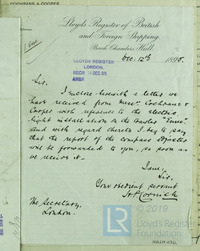 COCHRANE & COOPER
Lloyd's Register of British
and Foreign Shipping.
Bank Chambers, Hull.
Dec. 12th 1895.
LLOYD'S REGISTER
LONDON.
RECD 14 DEC. 95
ANSD
Sir,
I enclose herewith a letter we
have received from Messrs Cochrane &
Cooper with reference to the electric
light installation in the
and with regard thereto I beg to say
that the report of the compass adjuster
will be forwarded to you, so soon as
we receive it.
I am,
Sir,
Your obedient servant
The Secretary,
London.
© 2019
Lloyd's Register
Foundation